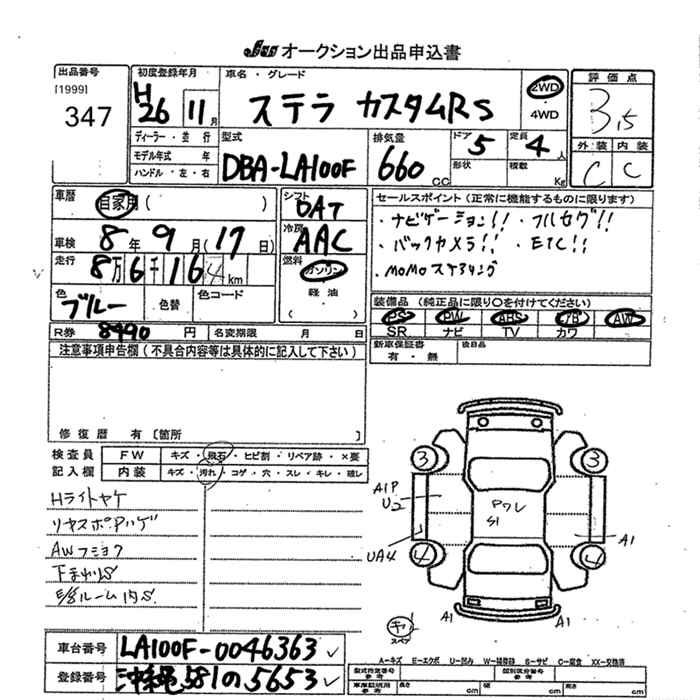 JU オークション出品申込書
出品番号
[1999]
347
初度登録年月
H26 11月
車名・グレード
ステラ カスタムRS
2WD
・4WD
評価点
3.5
外装 内装
C C
ディーラー・並行
モデル年式 年
ハンドル・左・右
型式
DBA-LA100F
排気量
660 CC
ドア 5
形状
定員 4 人
積載 Kg
車歴 自家用 ( )
車検 8年9月17日
走行 8万6千164km
色 ブルー
色替
色コード
シフト
DAT
冷房
AAC
燃料
ガソリン
軽油
( )
セールスポイント(正常に機能するものに限ります)
・ナビゲーション!! ・フルセグ!!
・バックカメラ!! ・ETC!!
・MOMOステアリング
装備品(純正品に限り○を付けてください)
PS PW ABS AB AW
SR ナビ TV カワ
R券 8490円
名変期限 月 日
新車保証書
有・無
後日品
注意事項申告欄(不具合内容等は具体的に記入して下さい)
修復歴 有〔箇所 〕
検査員
記入欄
FW キズ・飛石・ヒビ割・リペア跡・×要
内装 キズ・汚れ・コゲ・穴・スレ・キレ・破レ
Hライトヤケ
リヤスポPハゲ
AWフショク
下まわりS
E/gルーム内S
3 3
A1P
U2
Pワレ
S1
UA4
4 4
A1
A1 A1
キ
スペア
車台番号 LA100F-0046363
登録番号 沖縄581の5653
A-キズ E-エクボ U-凹み W-補修跡 S-サビ C-腐食 XX-交換済
型式指定番号
参考
類別区分番号
参考
車庫証明用
参考
長さ cm
幅 cm
高さ cm